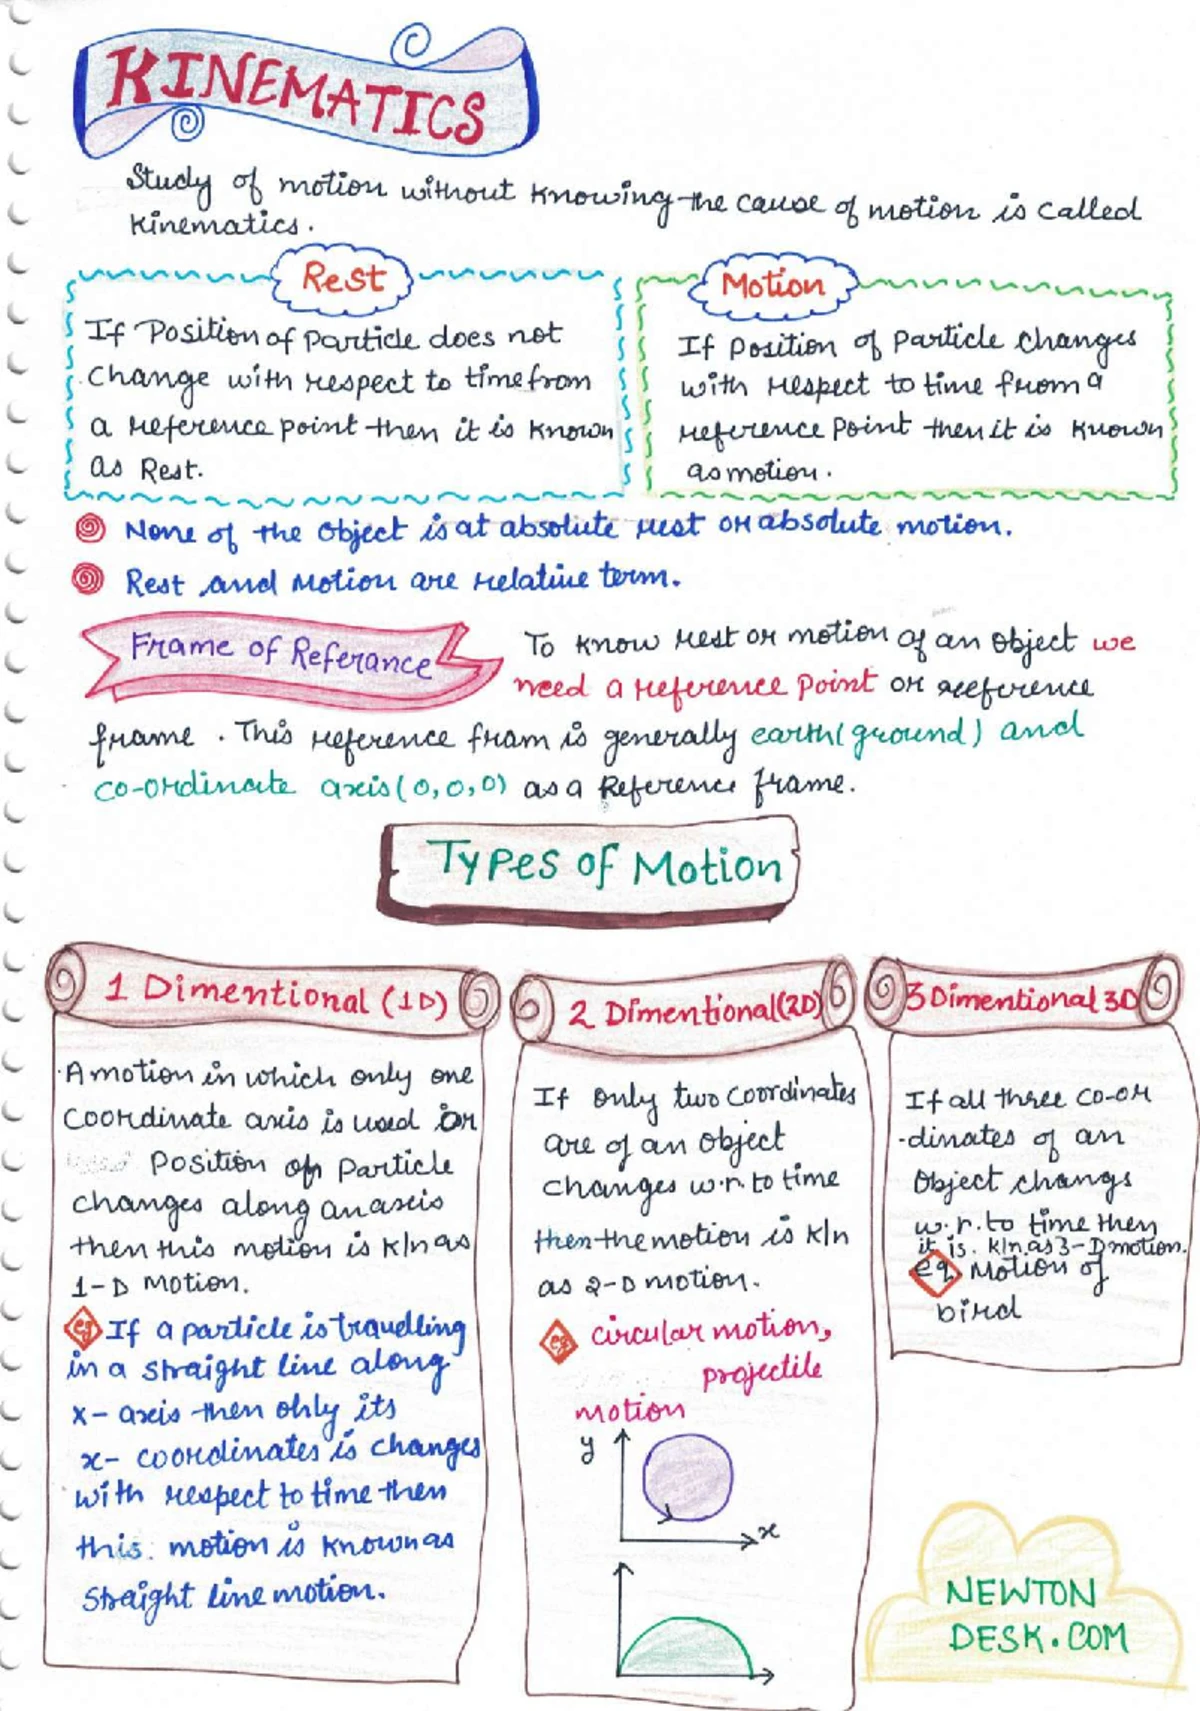 KINEMATICS
Study of motion without knowing the cause of motion is called
Kinematics.
Rest
If Position of Particle does not
Change with respect to time from
a reference point then it is known
as Rest.
Motion
If position of Particle Changes
with respect to time from a
reference Point then it is known
as motion.
None of the Object is at absolute rest or absolute motion.
Rest and Motion are relative term.
Frame of Referance
To know rest or motion of an object we
need a reference Point or reeference
frame. This reference fram is generally earth(ground) and
co-ordinate axis(0,0,0) as a Reference frame.
Types of Motion
1 Dimentional (1D)
A motion in which only one
Coordinate axis is used or
Position of Particle
changes along an axis
then this motion is k/n as
1-D Motion.
eg If a particle is travelling
in a straight line along
x-axis then only its
x- coordinates is changes
with respect to time then
this motion is known as
straight line motion.
2 Dimentional(2D)
If only two coordinates
are of an object
changes w.r. to time
then the motion is k/n
as 2-D motion.
eg circular motion,
projectile
motion
y
x
3 Dimentional 3D
If all three co-or
-dinates of an
Object changs
w.r. to time then
it is k/n as 3-D motion.
eg Motion of
bird
NEWTON
DESK.COM